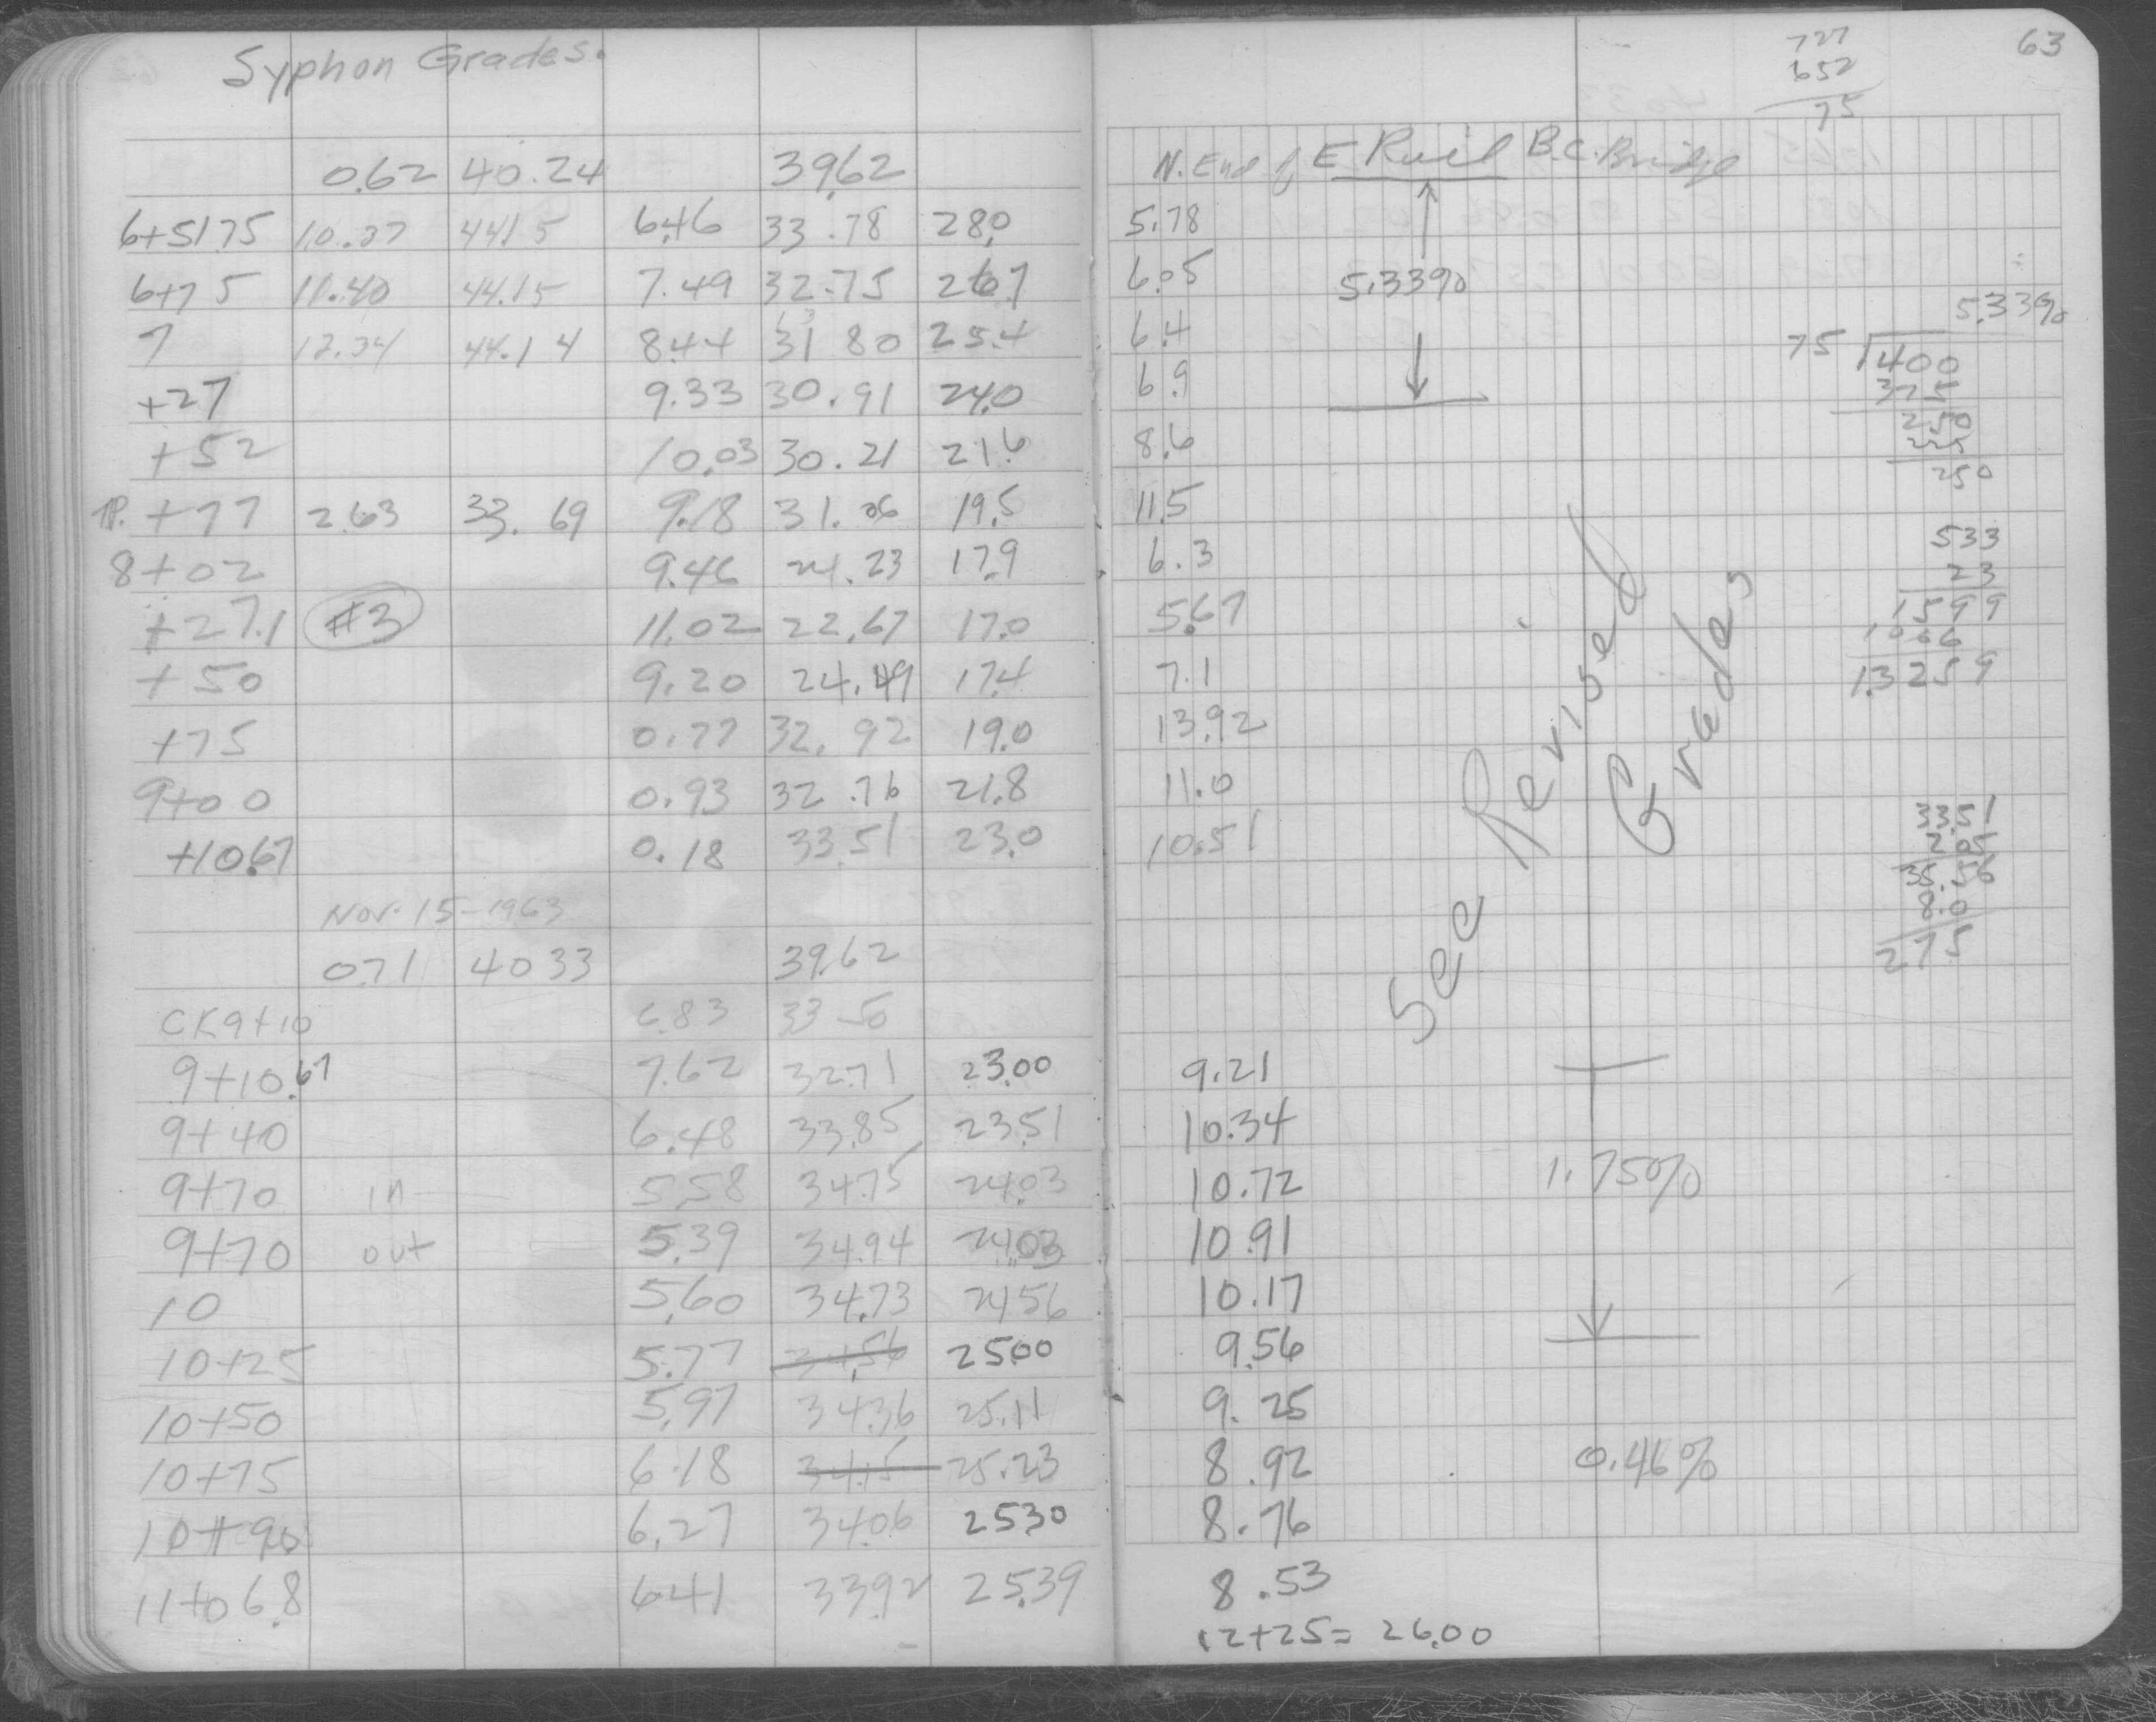 Syphon Grades.
0.62 40.24 39.62
6+51.75 10.37 44.15 6.46 33.78 28.0
6+75 11.40 44.15 7.49 32.75 26.7
7 12.34 44.14 8.44 31.80 25.4
+27 9.33 30.91 24.0
+52 10.03 30.21 21.6
T.P. +77 2.63 33.69 9.18 31.06 19.5
8+02 9.46 24.23 17.9
+27.1 #3 11.02 22.67 17.0
+50 9.20 24.49 17.4
+75 0.77 32.92 19.0
9+00 0.93 32.76 21.8
+10.67 0.18 33.51 23.0
Nov. 15-1963
0.71 40.33 39.62
CK 9+10 6.83 33.50
9+10.67 7.62 32.71 23.00
9+40 6.48 33.85 23.51
9+70 in 5.58 34.75 24.03
9+70 out 5.39 34.94 24.03
10 5.60 34.73 24.56
10+25 5.77 34.56 25.00
10+50 5.97 34.36 25.11
10+75 6.18 34.15 25.23
10+90 6.27 34.06 25.30
11+06.8 6.41 33.92 25.39
63
727
652
75
N. End of E Rail B.C. Bridge
5.78
6.05 5.33%
6.4
6.9
8.6
11.5
6.3
5.67
7.1
13.92
11.0
10.51
See Revised Grades
5.33%
75 400
375
250
225
250
533
23
1599
1066
1.3259
33.51
2.05
35.56
8.0
27.5
9.21
10.34
10.72 1.75%
10.91
10.17
9.56
9.25
8.92 0.46%
8.76
8.53
12+25= 26.00